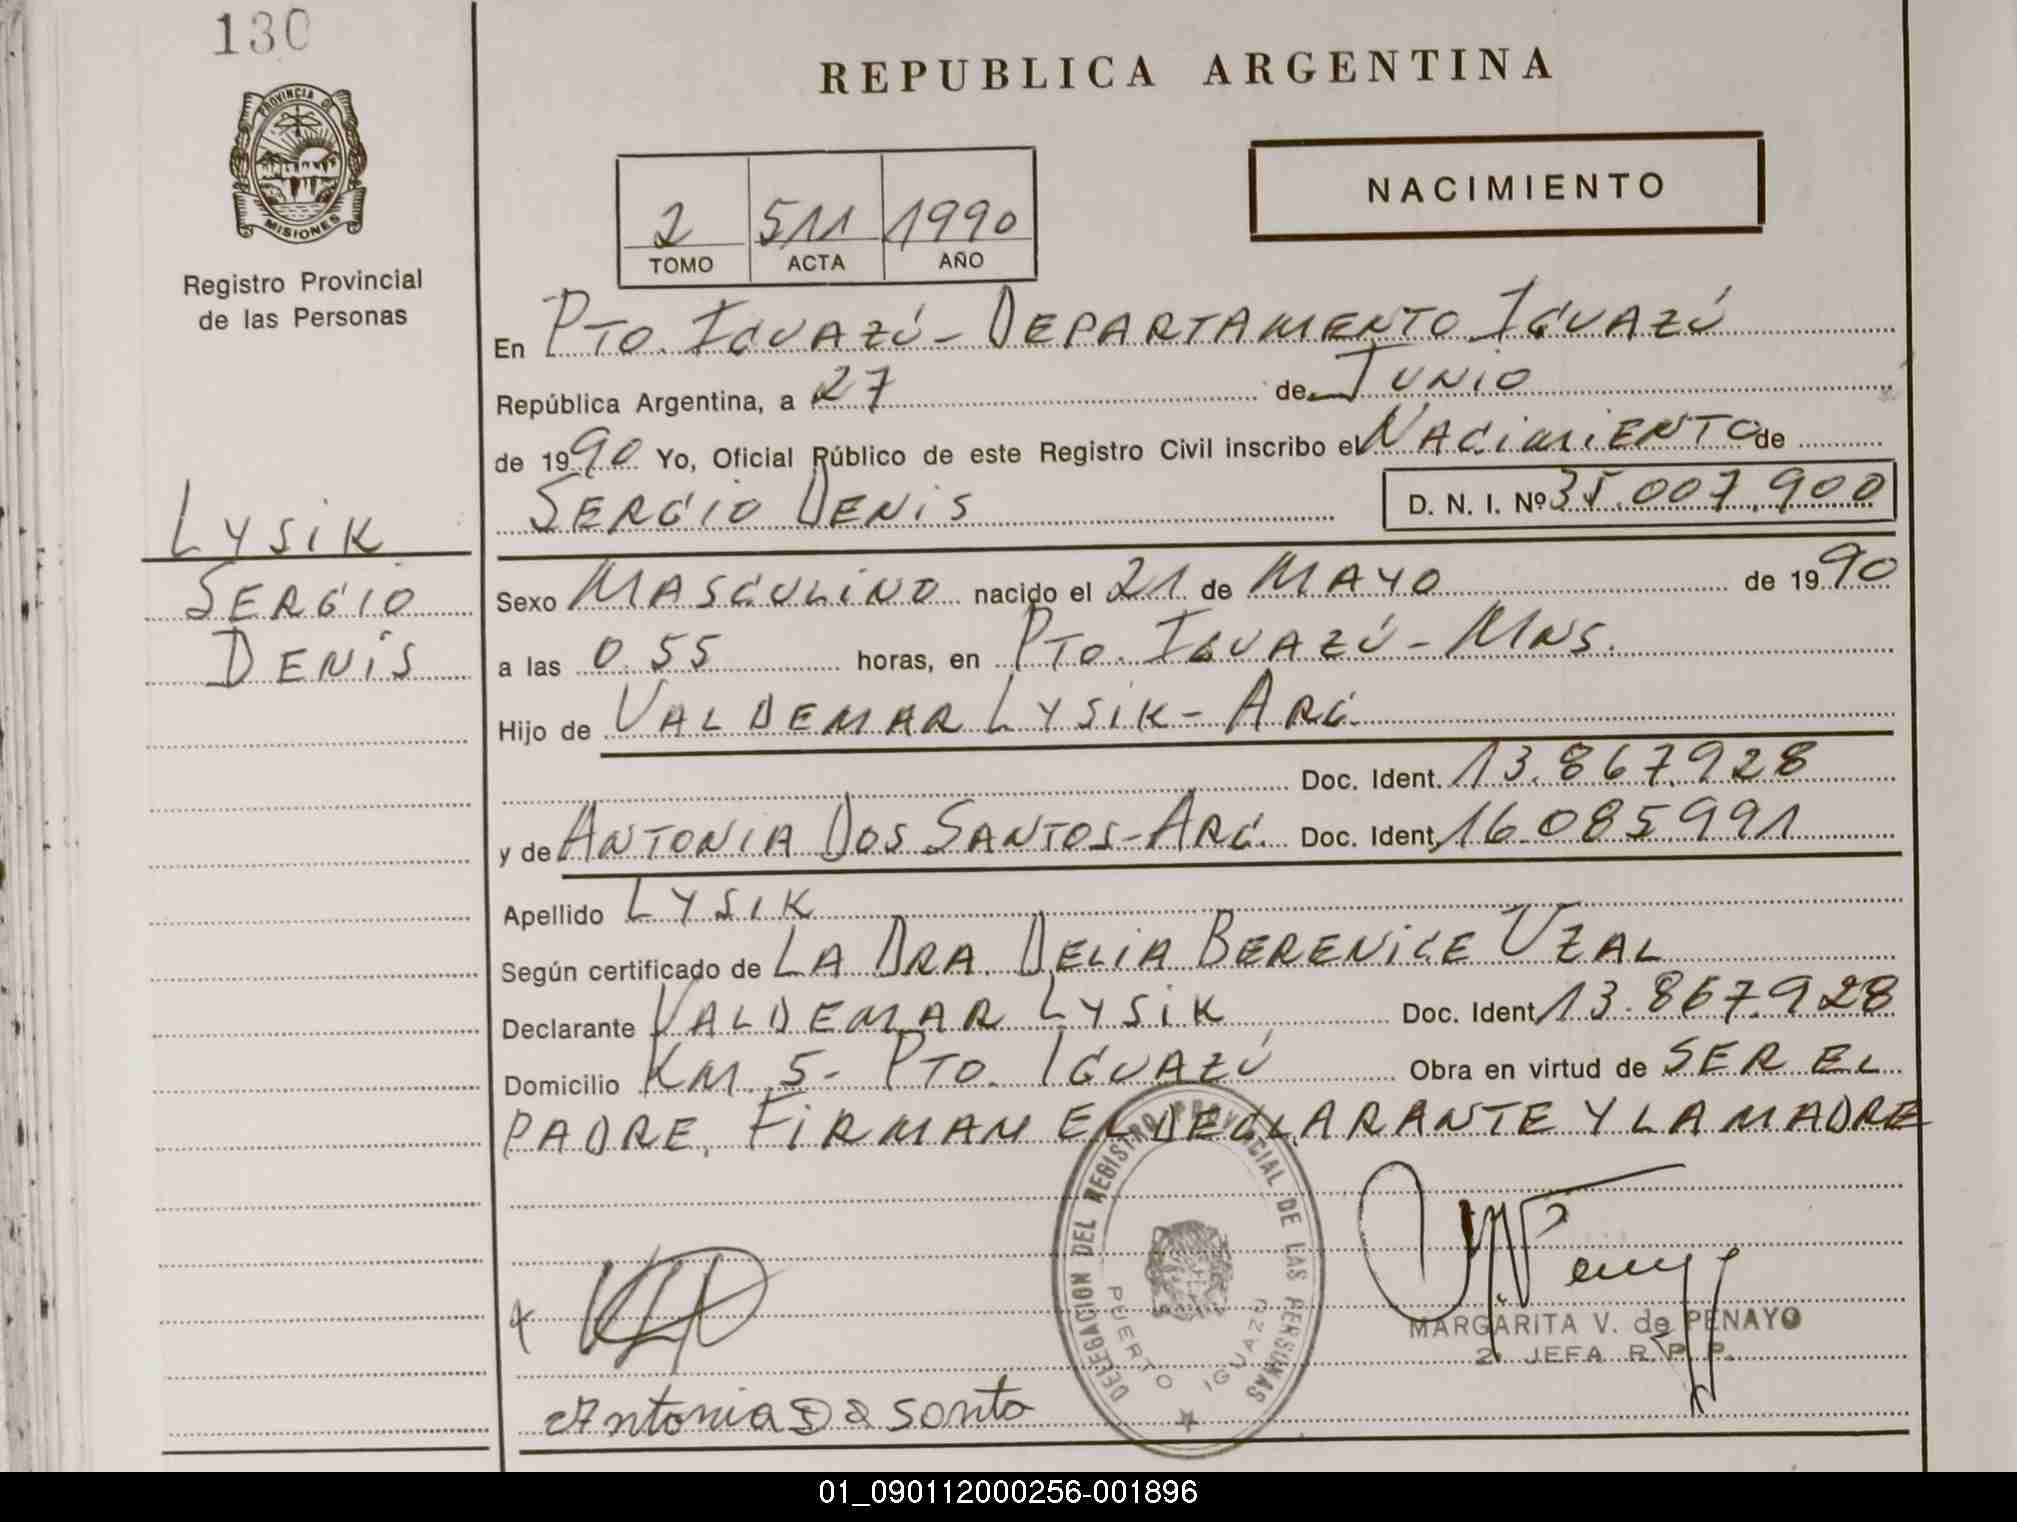 130
REPUBLICA ARGENTINA
PROVINCIA DE
MISIONES
Registro Provincial
de las Personas
NACIMIENTO
2 511 1990
TOMO ACTA AÑO
En PTO. IGUAZÚ - DEPARTAMENTO IGUAZÚ
República Argentina, a 27 de JUNIO
de 1990 Yo, Oficial Público de este Registro Civil inscribo el NACIMIENTO de
SERGIO DENIS D. N. I. Nº 35.007.900
LYSIK
SERGIO
DENIS
Sexo MASCULINO nacido el 21 de MAYO de 1990
a las 0.55 horas, en PTO. IGUAZÚ - MNS.
Hijo de VALDEMAR LYSIK - ARG.
Doc. Ident. 13.867.928
y de ANTONIA DOS SANTOS - ARG. Doc. Ident. 16.085.991
Apellido LYSIK
Según certificado de LA DRA. DELIA BERENICE UZAL
Declarante VALDEMAR LYSIK Doc. Ident. 13.867.928
Domicilio KM. 5 - PTO. IGUAZÚ Obra en virtud de SER EL
PADRE, FIRMAN EL DECLARANTE Y LA MADRE
DELEGACION DEL REGISTRO PROVINCIAL DE LAS PERSONAS
PUERTO IGUAZU
MARGARITA V. de PENAYO
2. JEFA R. P. P.
Antonia
01_090112000256-001896